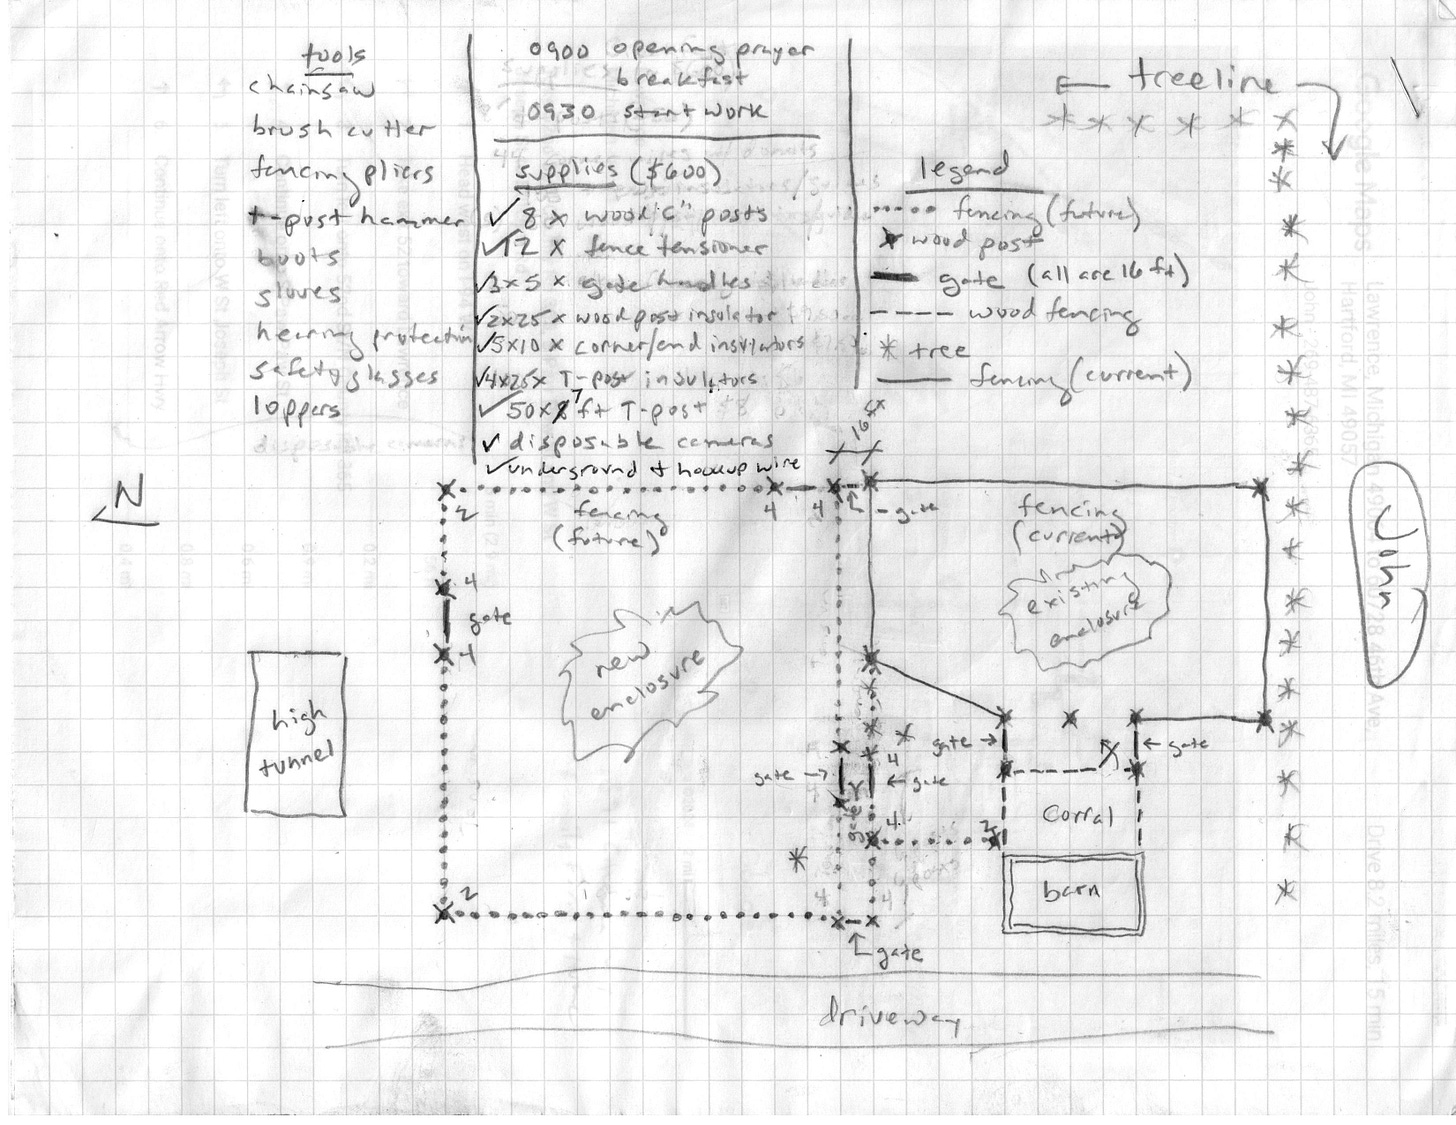 tools
chainsaw
brush cutter
fencing pliers
t-post hammer
boots
gloves
hearing protection
safety glasses
loppers
0900 opening prayer
breakfast
0930 start work
supplies ($600)
✓ 8 x wood 6" posts
✓ 12 x fence tensioner
✓ 3x5 x gate handles
✓ 2x25 x wood post insulator
✓ 5x10 x corner/end insulators
✓ 4x25x T-post insulators
✓ 50x 7 ft T-post
✓ disposable cameras
✓ underground + hookup wire
treeline
legend
fencing (future)
wood post
gate (all are 16 ft)
wood fencing
tree
fencing (current)
16 ft
N
2
4
4
gate
fencing
(future)
fencing
(current)
4
gate
4
existing
enclosure
new
enclosure
high
tunnel
gate
gate
gate
4
gate
gate
4
2
corral
barn
2
4
4
gate
driveway
John